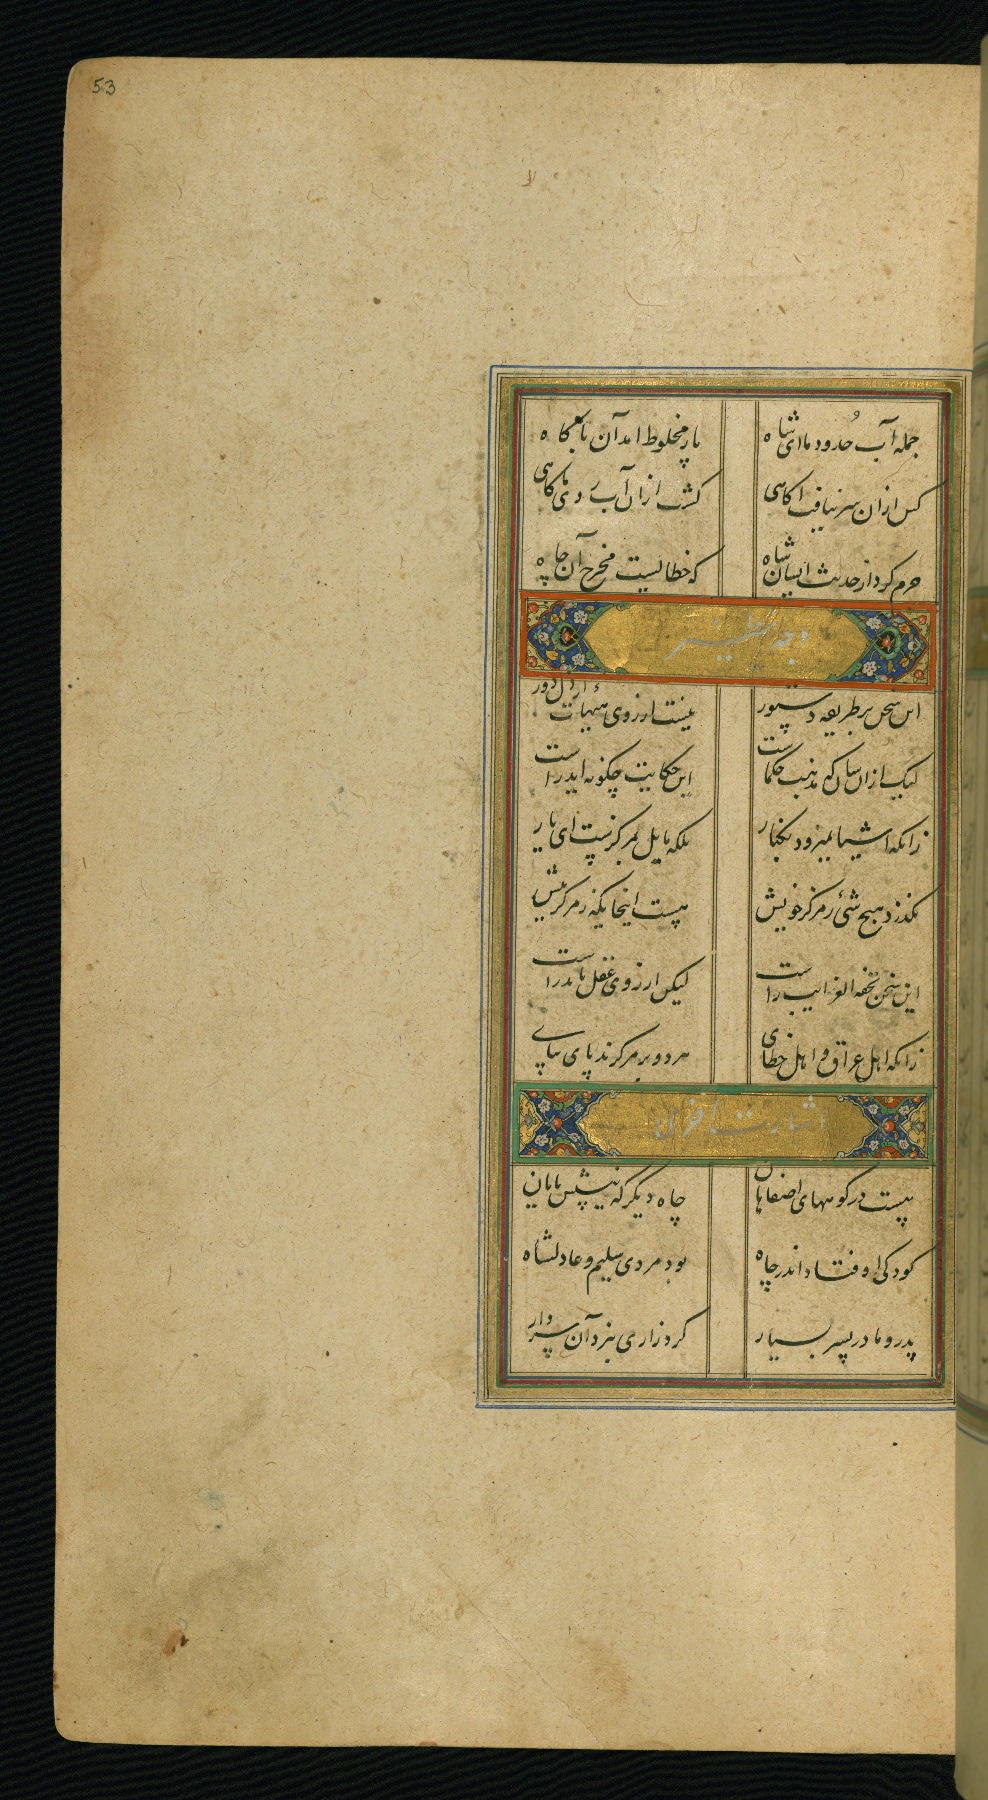 53
جمله آب حدود ما ای شاه مار مخلوط امد آن
کس ازان سر نیافت اکاهی کشت ازان آب
جرم کرد از حدیث ایسان شاه که خطا نیست مخرج آن چاه
وجه
این سخن بر طریقه دستور نیست از روی هیهات از دل دور
لیک ازان سان که مذهب حکماست این حکایت چکونه اید راست
زانکه اشیا بمیزود بکنار بلکه مایل بمرکزست ای یار
نکذرد هیچ شئ ز مرکز خویش نیست اینجا یکی ز مرکز بیش
این سخن تحفه الغرایب راست لیکن از روی عقل ناید راست
زانکه اهل عراق و اهل خطای هر دو بر مرکزند پای بپای
اشارت اخری
هست در کوههای اصفاهان چاه دیکر که نیستش پایان
کودکی اوفتاد اندر چاه بود مردی سلیم و عادلشاه
پدر و مادر پسر بسیار کرد زاری بنزد آن سردار